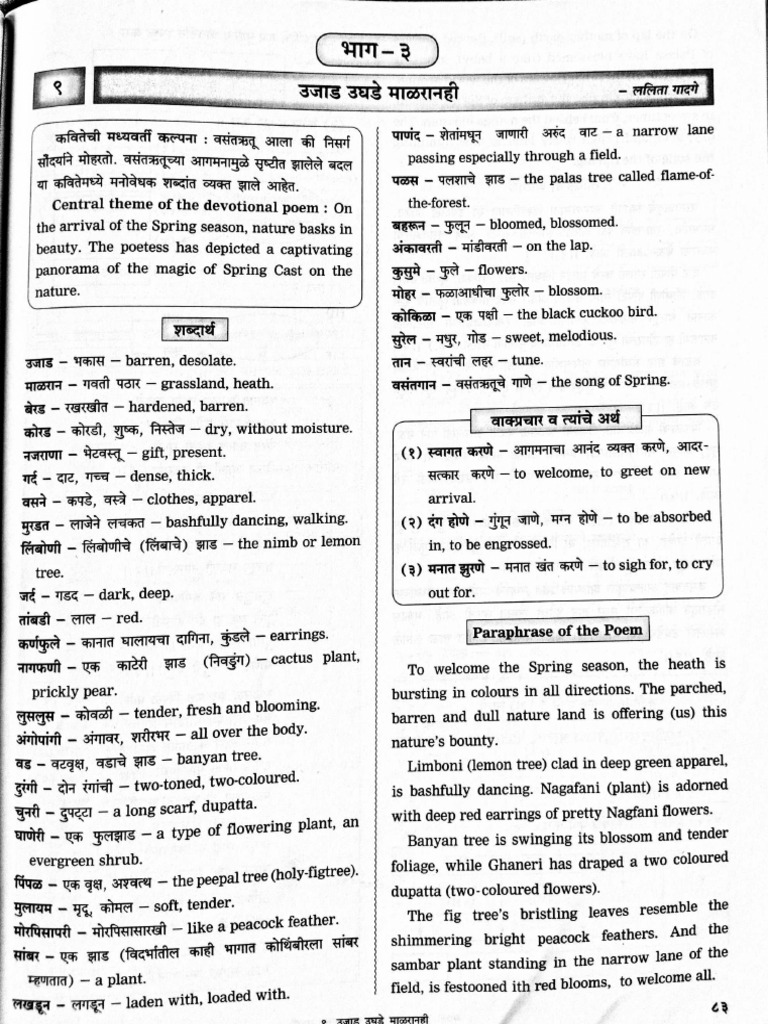 भाग – ३
९
उजाड उघडे माळरानही
– ललिता गादगे
कवितेची मध्यवर्ती कल्पना : वसंतऋतू आला की निसर्ग
सौंदर्याने मोहरतो. वसंतऋतूच्या आगमनामुळे सृष्टीत झालेले बदल
या कवितेमध्ये मनोवेधक शब्दांत व्यक्त झाले आहेत.
Central theme of the devotional poem : On
the arrival of the Spring season, nature basks in
beauty. The poetess has depicted a captivating
panorama of the magic of Spring Cast on the
nature.
शब्दार्थ
उजाड – भकास – barren, desolate.
माळरान – गवती पठार – grassland, heath.
बेरड – रखरखीत – hardened, barren.
कोरड – कोरडी, शुष्क, निस्तेज – dry, without moisture.
नजराणा – भेटवस्तू – gift, present.
गर्द – दाट, गच्च – dense, thick.
वसने – कपडे, वस्त्रे – clothes, apparel.
मुरडत – लाजेने लचकत – bashfully dancing, walking.
लिंबोणी – लिंबोणीचे (लिंबाचे) झाड – the nimb or lemon
tree.
जर्द – गडद – dark, deep.
तांबडी – लाल – red.
कर्णफुले – कानात घालायचा दागिना, कुंडले – earrings.
नागफणी – एक काटेरी झाड (निवडुंग) – cactus plant,
prickly pear.
लुसलुस – कोवळी – tender, fresh and blooming.
अंगोपांगी – अंगावर, शरीरभर – all over the body.
वड – वटवृक्ष, वडाचे झाड – banyan tree.
दुरंगी – दोन रंगांची – two-toned, two-coloured.
चुनरी – दुपट्टा – a long scarf, dupatta.
घाणेरी – एक फुलझाड – a type of flowering plant, an
evergreen shrub.
पिंपळ – एक वृक्ष, अश्वत्थ – the peepal tree (holy-figtree).
मुलायम – मृदू, कोमल – soft, tender.
मोरपिसापरी – मोरपिसासारखी – like a peacock feather.
सांबर – एक झाड (विदर्भातील काही भागात कोथिंबीरला सांबर
म्हणतात) – a plant.
लखडून – लगडून – laden with, loaded with.
पाणंद – शेतांमधून जाणारी अरुंद वाट – a narrow lane
passing especially through a field.
पळस – पलशाचे झाड – the palas tree called flame-of-
the-forest.
बहरून – फुलून – bloomed, blossomed.
अंकावरती – मांडीवरती – on the lap.
कुसुमे – फुले – flowers.
मोहर – फळाआधीचा फुलोर – blossom.
कोकिळा – एक पक्षी – the black cuckoo bird.
सुरेल – मधुर, गोड – sweet, melodious.
तान – स्वरांची लहर – tune.
वसंतगान – वसंतऋतूचे गाणे – the song of Spring.
वाक्प्रचार व त्यांचे अर्थ
(१) स्वागत करणे – आगमनाचा आनंद व्यक्त करणे, आदर-
सत्कार करणे – to welcome, to greet on new
arrival.
(२) दंग होणे – गुंगून जाणे, मग्न होणे – to be absorbed
in, to be engrossed.
(३) मनात झुरणे – मनात खंत करणे – to sigh for, to cry
out for.
Paraphrase of the Poem
To welcome the Spring season, the heath is
bursting in colours in all directions. The parched,
barren and dull nature land is offering (us) this
nature's bounty.
Limboni (lemon tree) clad in deep green apparel,
is bashfully dancing. Nagafani (plant) is adorned
with deep red earrings of pretty Nagfani flowers.
Banyan tree is swinging its blossom and tender
foliage, while Ghaneri has draped a two coloured
dupatta (two-coloured flowers).
The fig tree's bristling leaves resemble the
shimmering bright peacock feathers. And the
sambar plant standing in the narrow lane of the
field, is festooned ith red blooms, to welcome all.
९ उजाड उघडे माळरानही
८३